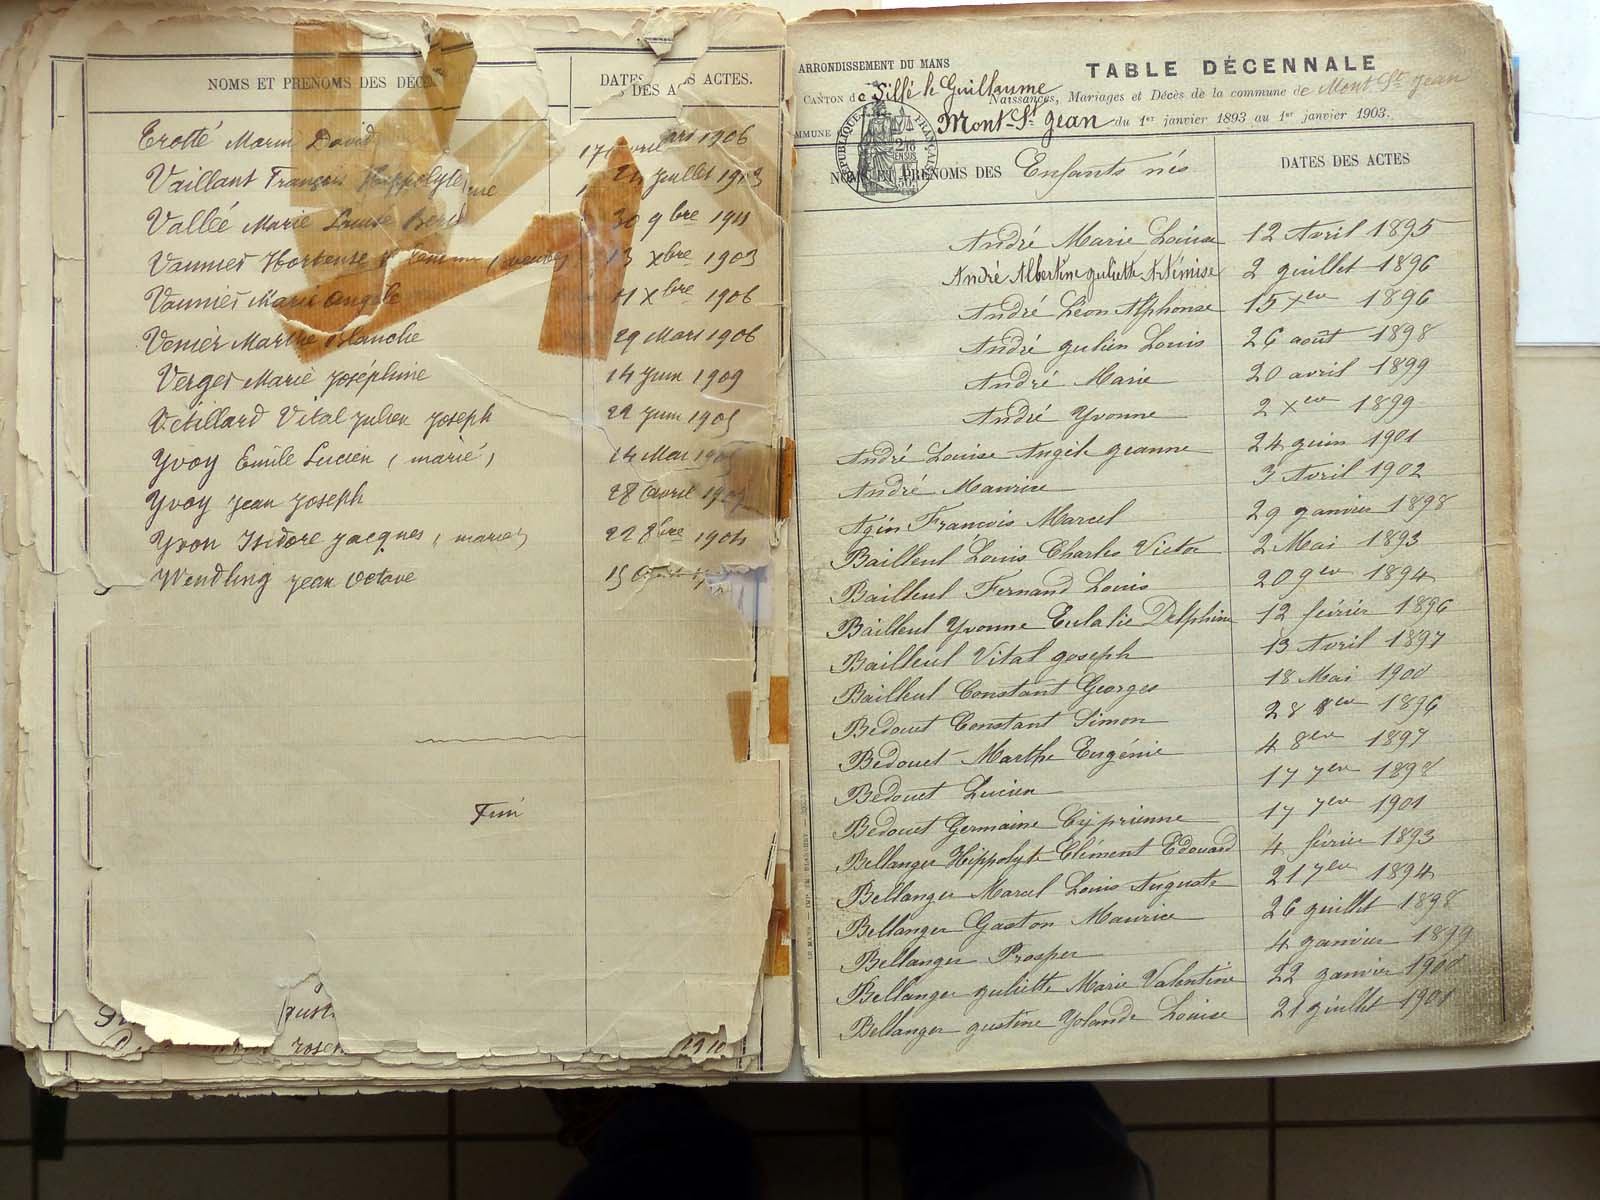 NOMS ET PRENOMS DES DÉCÉ
DATES DES ACTES.
Trotté Marin David
17 avril 1906
Vaillant François Hippolyte
24 juillet 1903
Vallée Marie Louise
30 9bre 1911
Vannier Hortense
13 Xbre 1903
Vannier Marie Angèle
11 Xbre 1906
Venier Marthe Blanche
29 Mars 1906
Verger Marie Joséphine
14 Juin 1909
Vétillard Vital Julien Joseph
22 Juin 1905
Yvoy Emile Lucien (marié)
14 Mai
Yvoy Jean Joseph
28 avril
Yvon Isidore Jacques (marié)
22 8bre 1904
Wendling Jean Octave
15
Fin
1910
ARRONDISSEMENT DU MANS
TABLE DÉCENNALE
CANTON de Sillé le Guillaume
Naissances, Mariages et Décès de la commune de Mont-St-Jean
MMUNE Mont-St-Jean du 1er janvier 1893 au 1er janvier 1903.
RÉPUBLIQUE FRANÇAISE
NOMS ET PRÉNOMS DES Enfants nés
DATES DES ACTES
André Marie Louise 12 Avril 1895
André Albertine Juliette Artémise 2 Juillet 1896
André Léon Alphonse 15 Xer 1896
André Julien Louis 26 août 1898
André Marie 20 avril 1899
André Yvonne 2 Xer 1899
André Louise Angèle Jeanne 24 Juin 1901
André Maurice 3 Avril 1902
Agin François Marcel 29 Janvier 1898
Bailleul Louis Charles Victor 2 Mai 1893
Bailleul Fernand Louis 20 9er 1894
Bailleul Yvonne Eulalie Delphine 12 février 1896
Bailleul Vital Joseph 13 Avril 1897
Bailleul Constant Georges 18 Mai 1900
Bedouet Constant Simon 28 8er 1896
Bedouet Marthe Eugénie 4 8er 1897
Bedouet Lucien 17 7er 1898
Bedouet Germaine Cyprienne 17 7er 1901
Bellanger Hippolyte Clément Edouard 4 février 1893
Bellanger Marcel Louis Auguste 21 7er 1894
Bellanger Gaston Maurice 26 Juillet 1898
Bellanger Prosper 4 Janvier 1899
Bellanger Juliette Marie Valentine 22 Janvier 1900
Bellanger Justine Yolande Louise 21 Juillet 1901